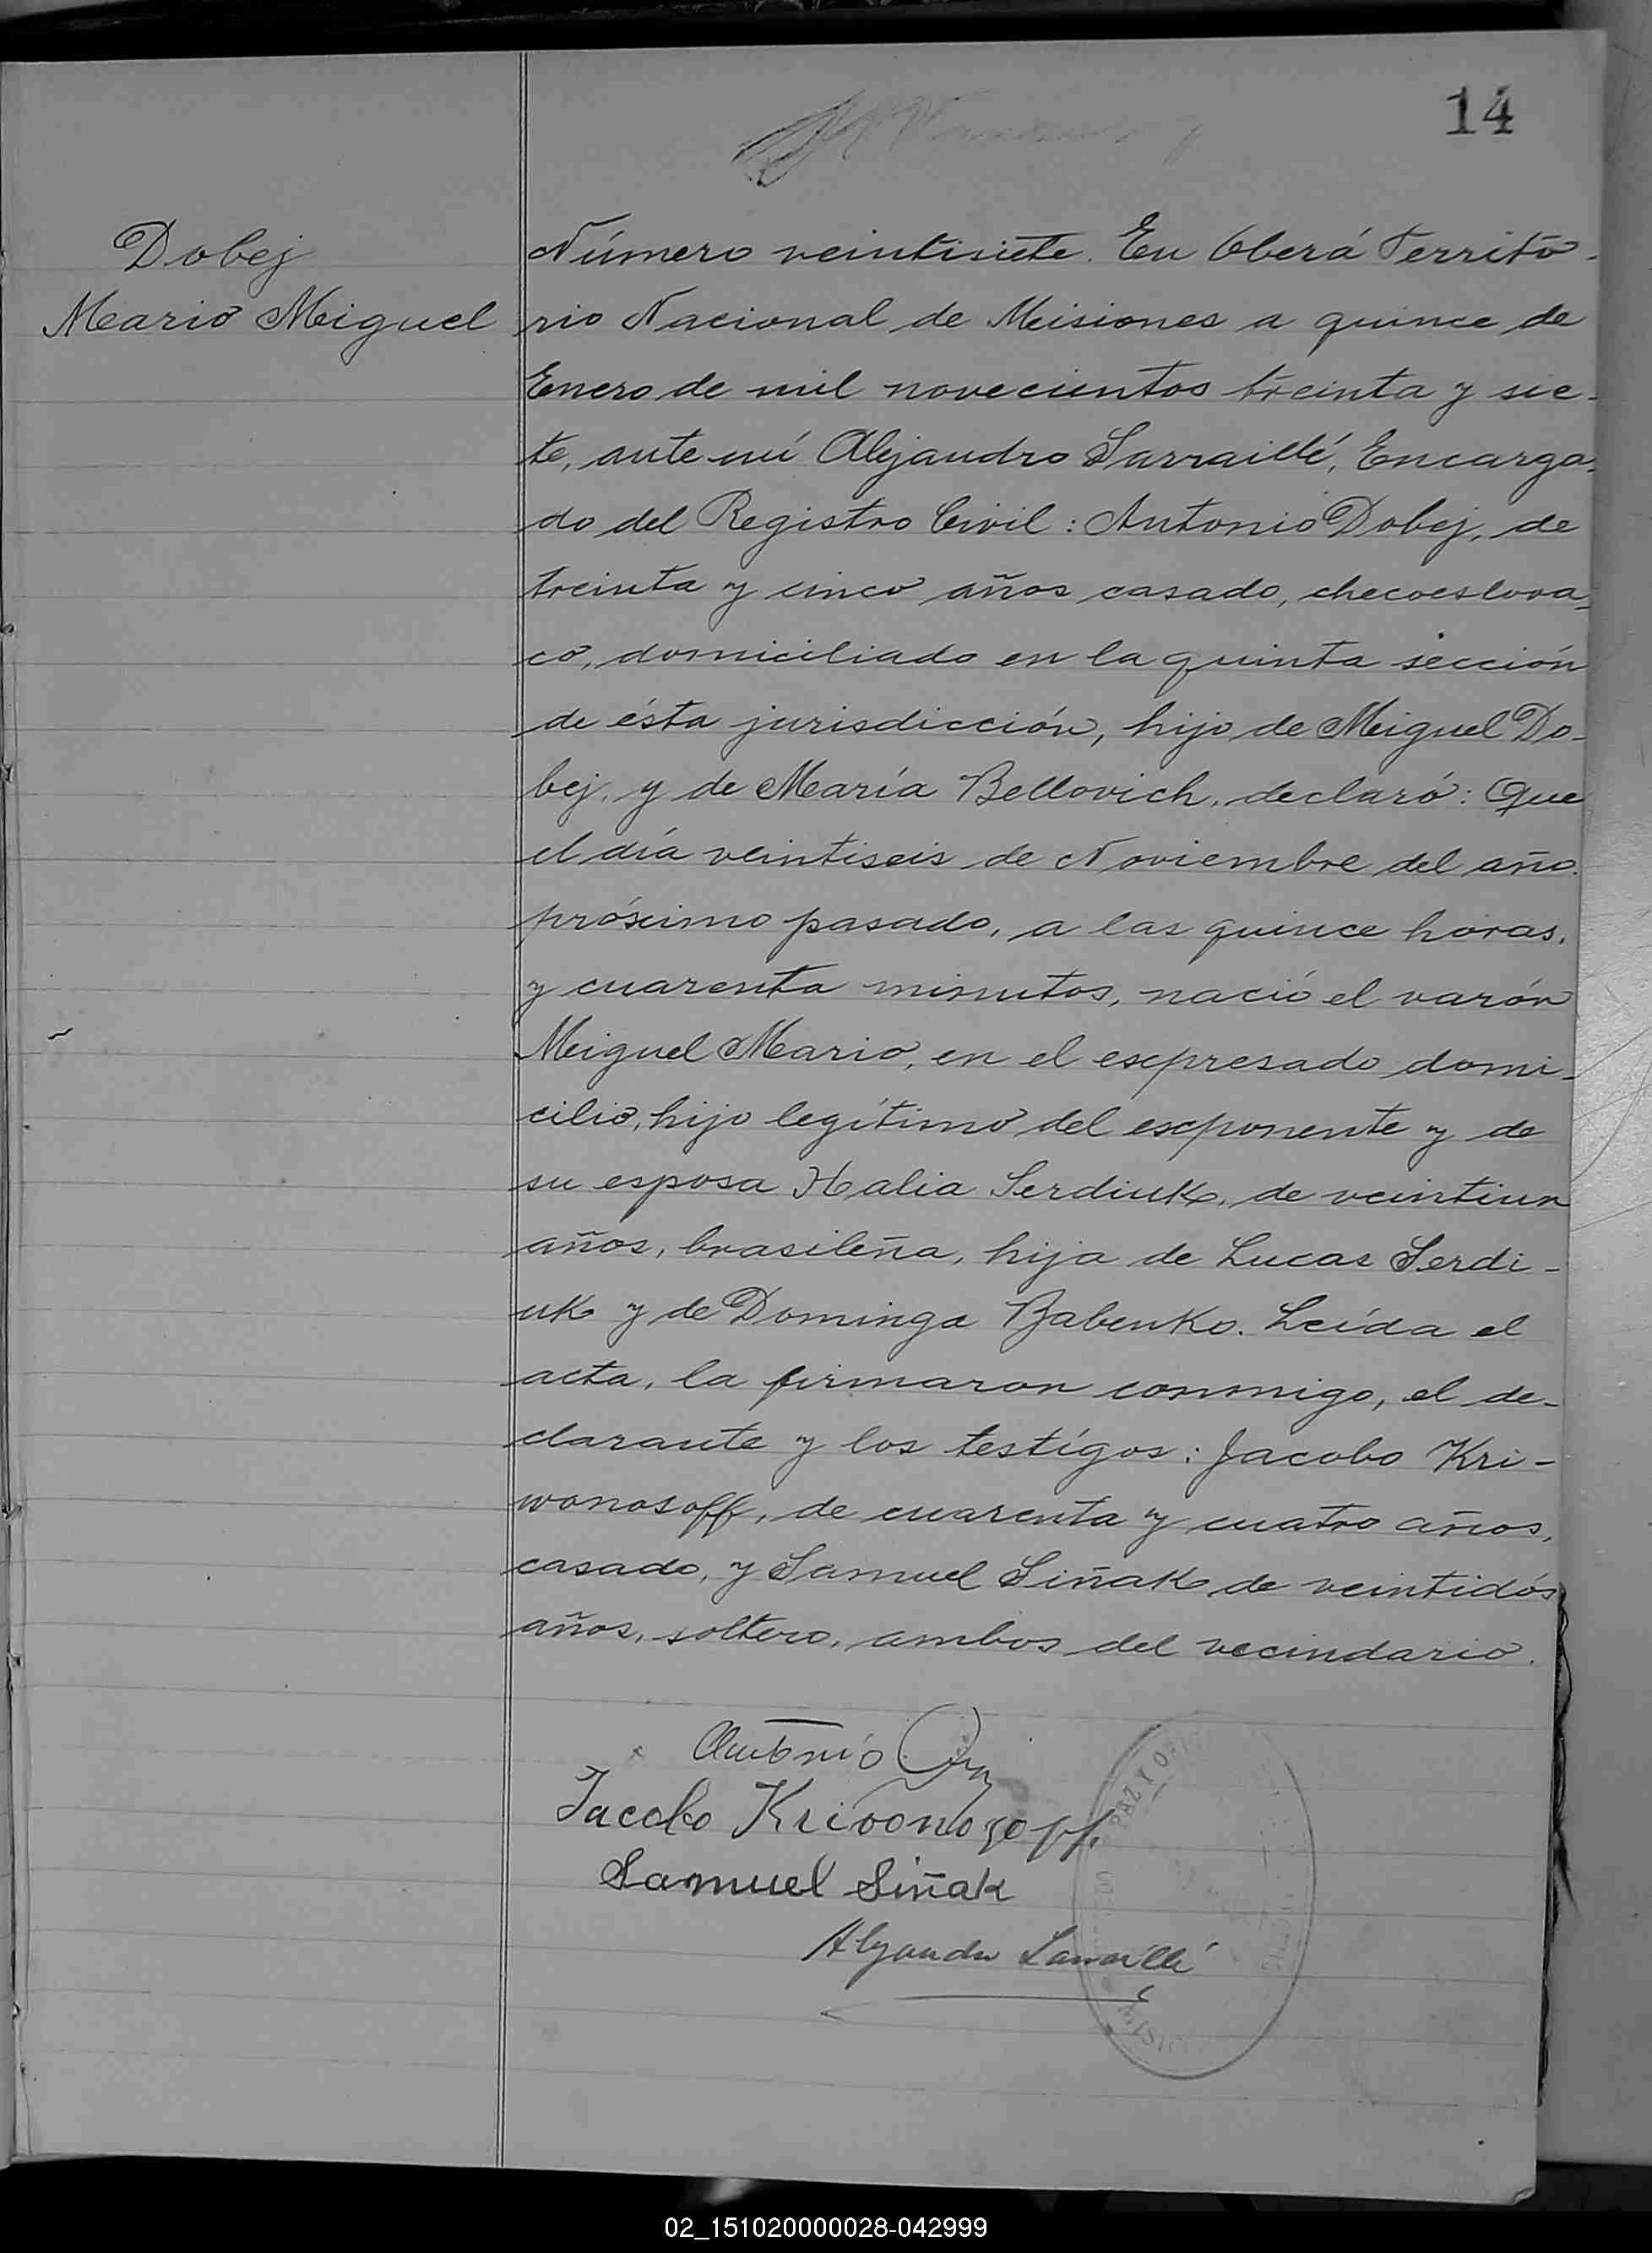 14
Dobej
Mario Miguel
Número veintisiete. En Oberá Territo-
rio Nacional de Misiones a quince de
Enero de mil novecientos treinta y sie-
te, ante mí Alejandro Sarraillé, Encarga-
do del Registro Civil: Antonio Dobej, de
treinta y cinco años casado, checoeslova-
co, domiciliado en la quinta sección
de ésta jurisdicción, hijo de Miguel Do-
bej, y de María Bellovich, declaró: Que
el día veintiseis de Noviembre del año
próximo pasado, a las quince horas,
y cuarenta minutos, nació el varón
Miguel Mario, en el expresado domi-
cilio, hijo legítimo del exponente y de
su esposa Halia Serdiuk, de veintiun
años, brasileña, hija de Lucas Serdi-
uk y de Dominga Babenko. Leída el
acta, la firmaron conmigo, el de-
clarante y los testígos: Jacobo Kri-
wonosoff, de cuarenta y cuatro años,
casado, y Samuel Siñak de veintidós
años, soltero, ambos del vecindario.
Antonio
Jacobo Krivonozoff.
Samuel Siñak
Alejandro Sarraillé
PAZ Y
02_151020000028-042999